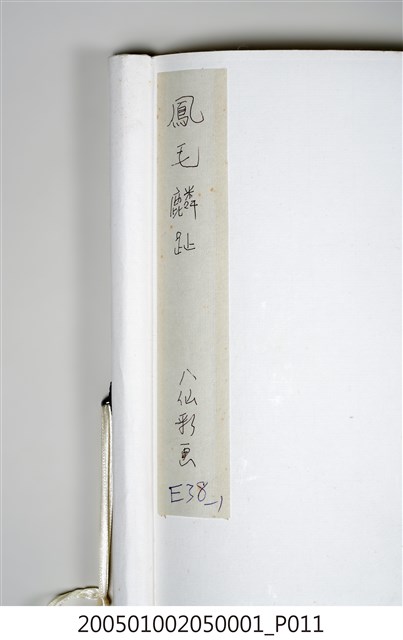 鳳毛麟趾
八仙彩画
E38-1
200501002050001_P011